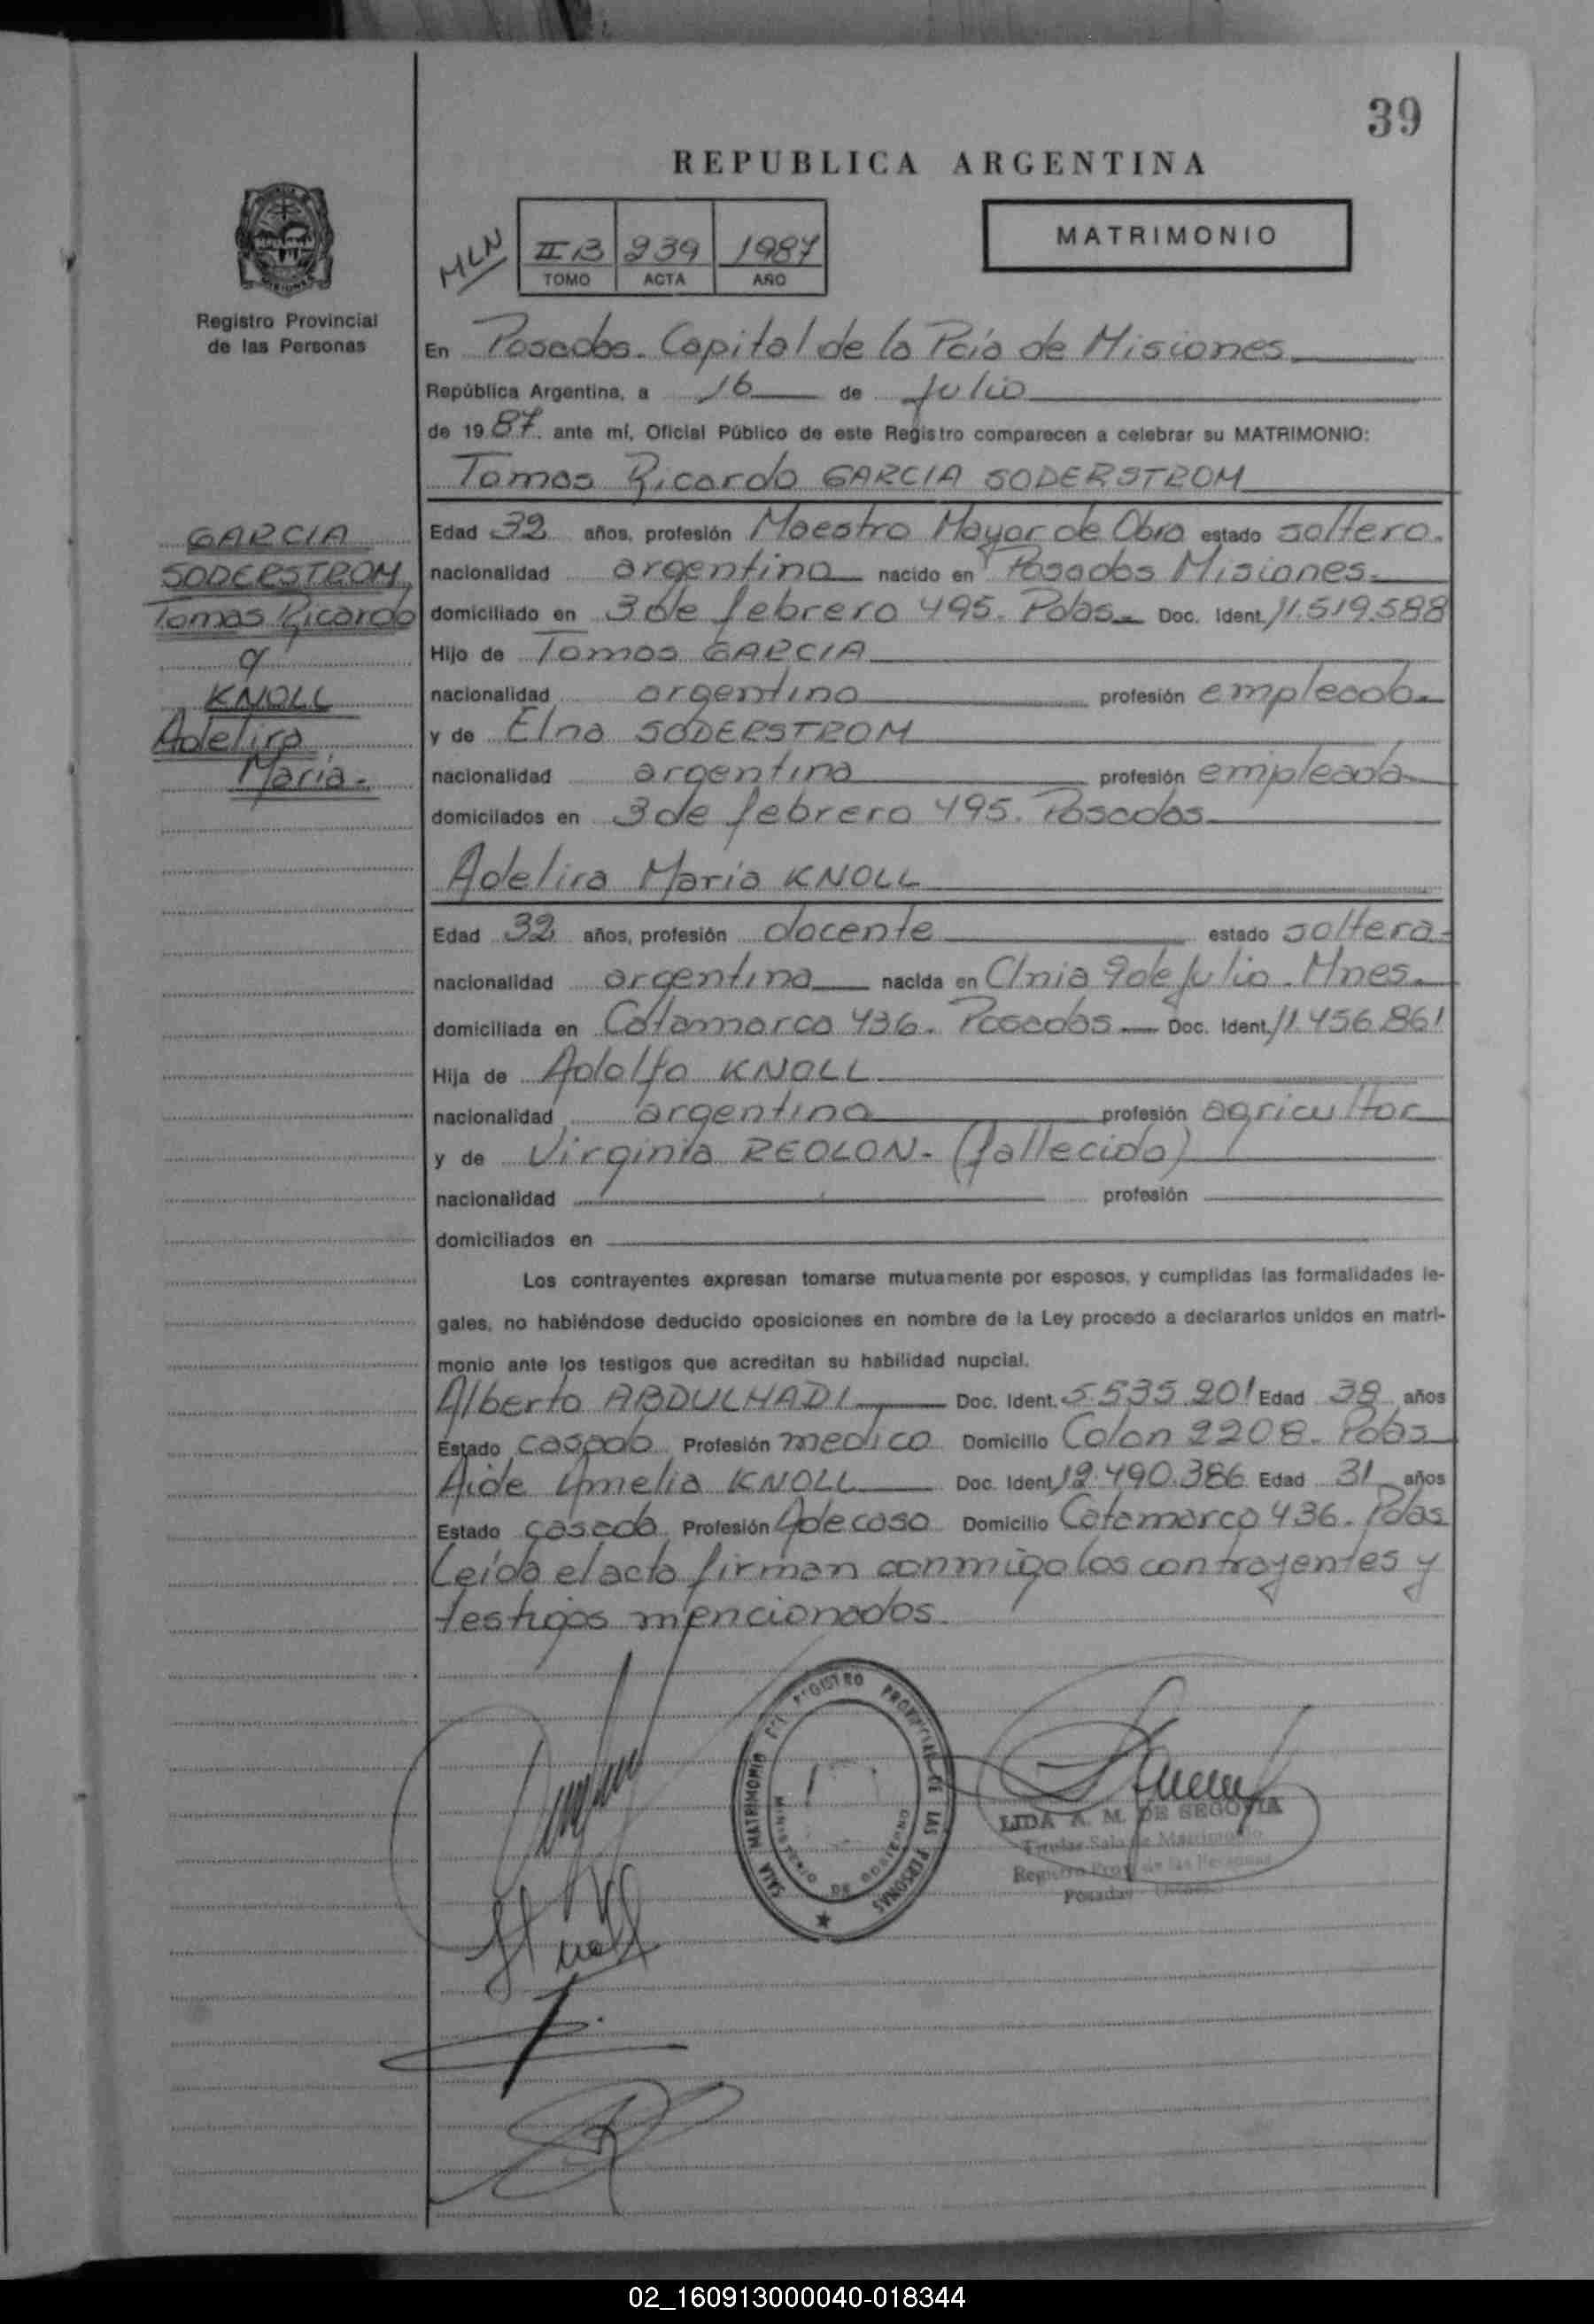 39
REPUBLICA ARGENTINA
MLN
II B 239 1987
TOMO ACTA AÑO
MATRIMONIO
Registro Provincial
de las Personas
En Posadas. Capital de la Pcia de Misiones
República Argentina, a 16 de julio
de 1987. ante mí, Oficial Público de este Registro comparecen a celebrar su MATRIMONIO:
Tomas Ricardo GARCIA SODERSTROM
GARCIA
SODERSTROM,
Tomas Ricardo
y
KNOLL
Adelira
Maria.-
Edad 32 años, profesión Maestro Mayor de Obra estado soltero.
nacionalidad argentina nacido en Posadas Misiones.
domiciliado en 3 de febrero 495. Pdas. Doc. Ident. 11.519.588
Hijo de Tomas GARCIA
nacionalidad argentino profesión empleado.
y de Elna SODERSTROM
nacionalidad argentina profesión empleada
domicilados en 3 de febrero 495. Posadas.
Adelira Maria KNOLL
Edad 32 años, profesión docente estado soltera.
nacionalidad argentina nacida en Clnia 9 de julio. Mnes.
domiciliada en Catamarca 436. Posadas Doc. Ident. 11.456.861
Hija de Adolfo KNOLL
nacionalidad argentino profesión agricultor
y de Virginia REOLON. (fallecida)
nacionalidad profesión
domiciliados en
Los contrayentes expresan tomarse mutuamente por esposos, y cumplidas las formalidades le-
gales, no habiéndose deducido oposiciones en nombre de la Ley procedo a declararlos unidos en matri-
monio ante los testigos que acreditan su habilidad nupcial.
Alberto ABDULHADI Doc. Ident. 5.535.201 Edad 38 años
Estado casado Profesión medico Domicilio Colon 2208. Pdas
Aide Amelia KNOLL Doc. Ident. 12.490.386 Edad 31 años
Estado casada Profesión A de casa Domicilio Catamarca 436. Pdas
Leida el acta firman conmigo los contrayentes y
testigos mencionados.
SALA MATRIMONIO REGISTRO PROVINCIAL DE LAS PERSONAS
MINISTERIO DE GOBIERNO
LIDA A. M. DE SEGOVIA
Titular Sala de Matrimonio
Registro Prov. de las Personas
Posadas
02_160913000040-018344